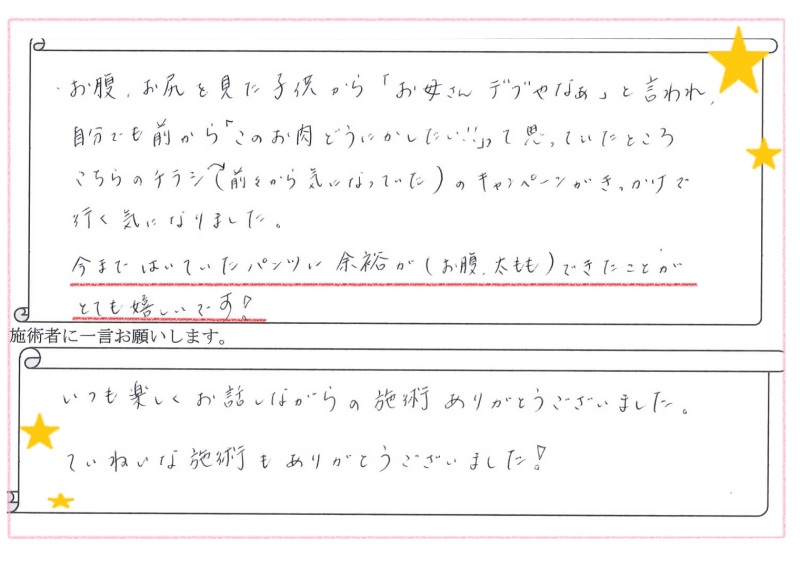 ・お腹、お尻を見た子供から「お母さんデブやなぁ」と言われ、
自分でも前から「このお肉どうにかしたい!!」って思っていたところ
こちらのチラシ(前々から気になっていた)のキャンペーンがきっかけで
行く気になりました。
今まではいていたパンツに余裕が(お腹、太もも)できたことが
とても嬉しいです!
施術者に一言お願いします。
いつも楽しくお話しながらの施術ありがとうございました。
ていねいな施術もありがとうございました!